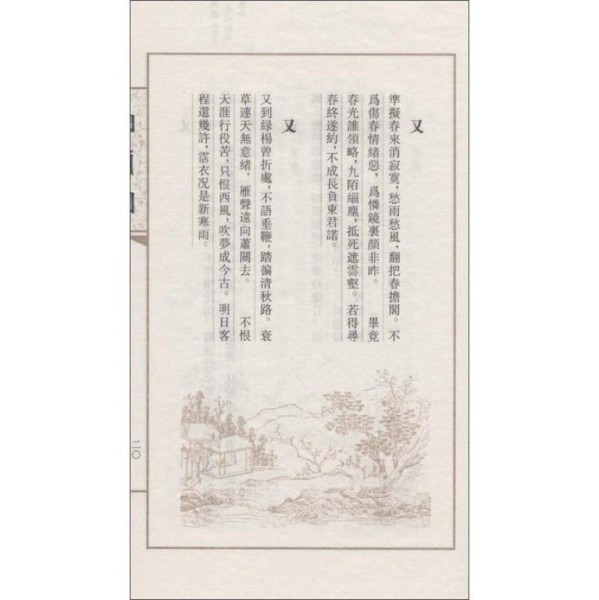 又
準擬春來消寂寞，愁雨愁風，翻把春擔閣。不
爲傷春情緒惡，爲憐鏡裏顏非昨。　畢竟
春光誰領略，九陌緇塵，抵死遮雲壑。若得尋
春終遂約，不成長負東君諾。
又
又到綠楊曾折處，不語垂鞭，踏徧清秋路。衰
草連天無意緒，雁聲遠向蕭關去。　不恨
天涯行役苦，只恨西風，吹夢成今古。明日客
程還幾許，霑衣况是新寒雨。
二〇